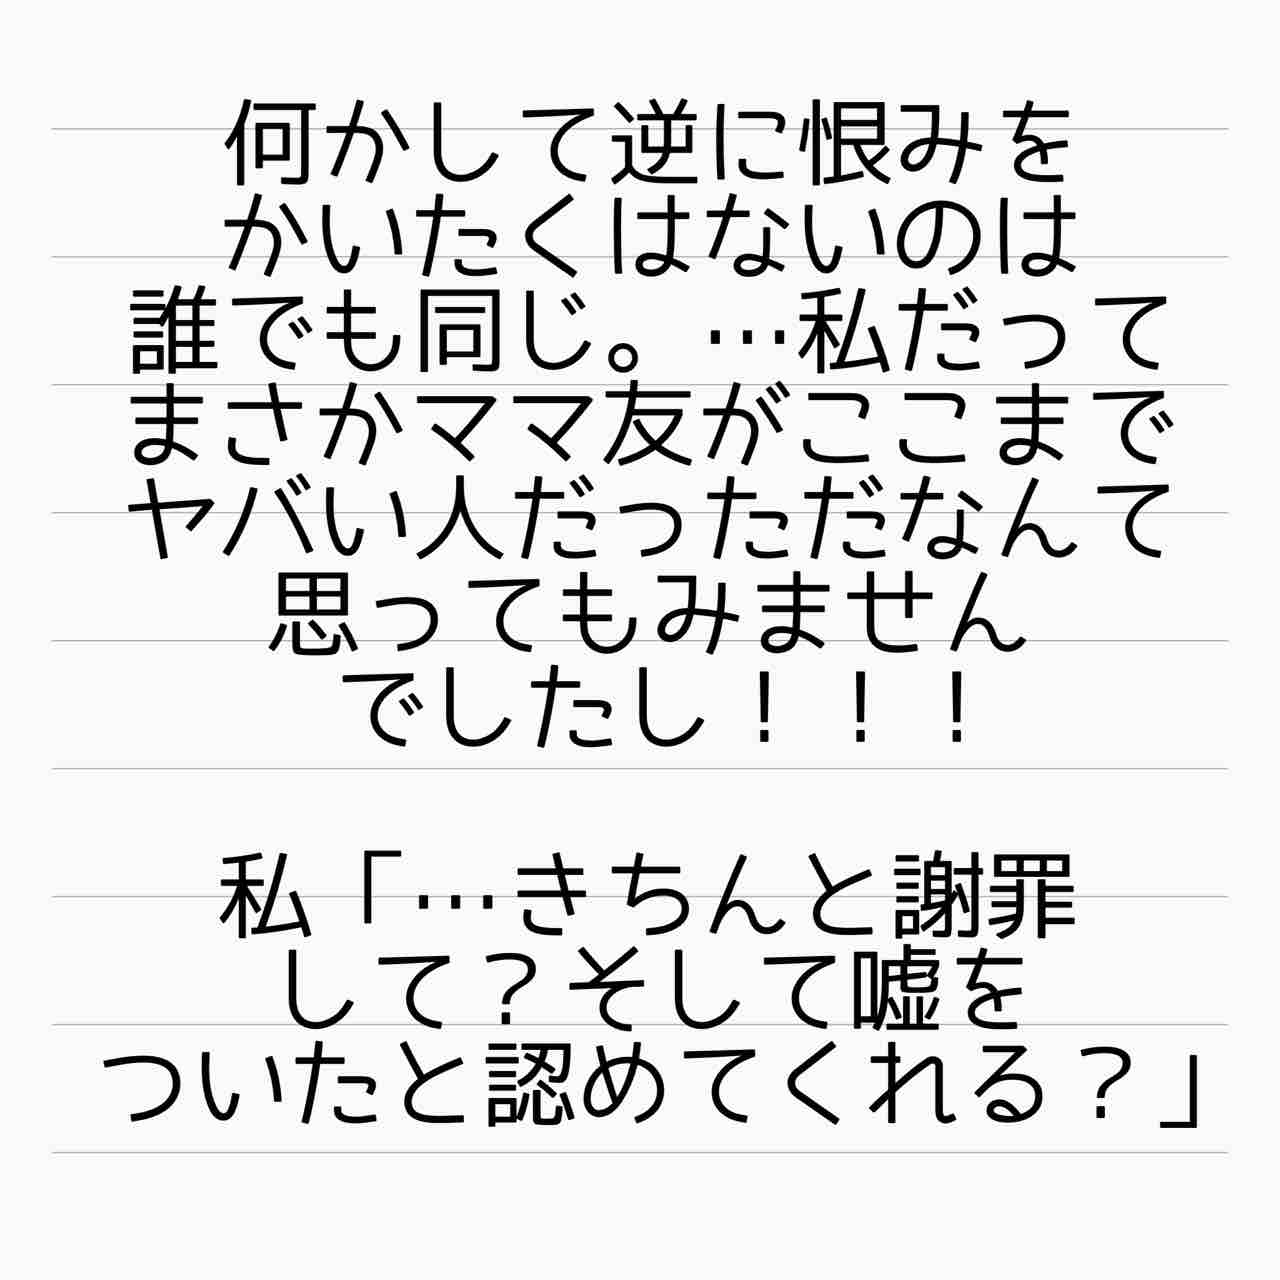 何かして逆に恨みを
かいたくはないのは
誰でも同じ。…私だって
まさかママ友がここまで
ヤバい人だっただなんて
思ってもみません
でしたし！！！
私「…きちんと謝罪
して？そして嘘を
ついたと認めてくれる？」